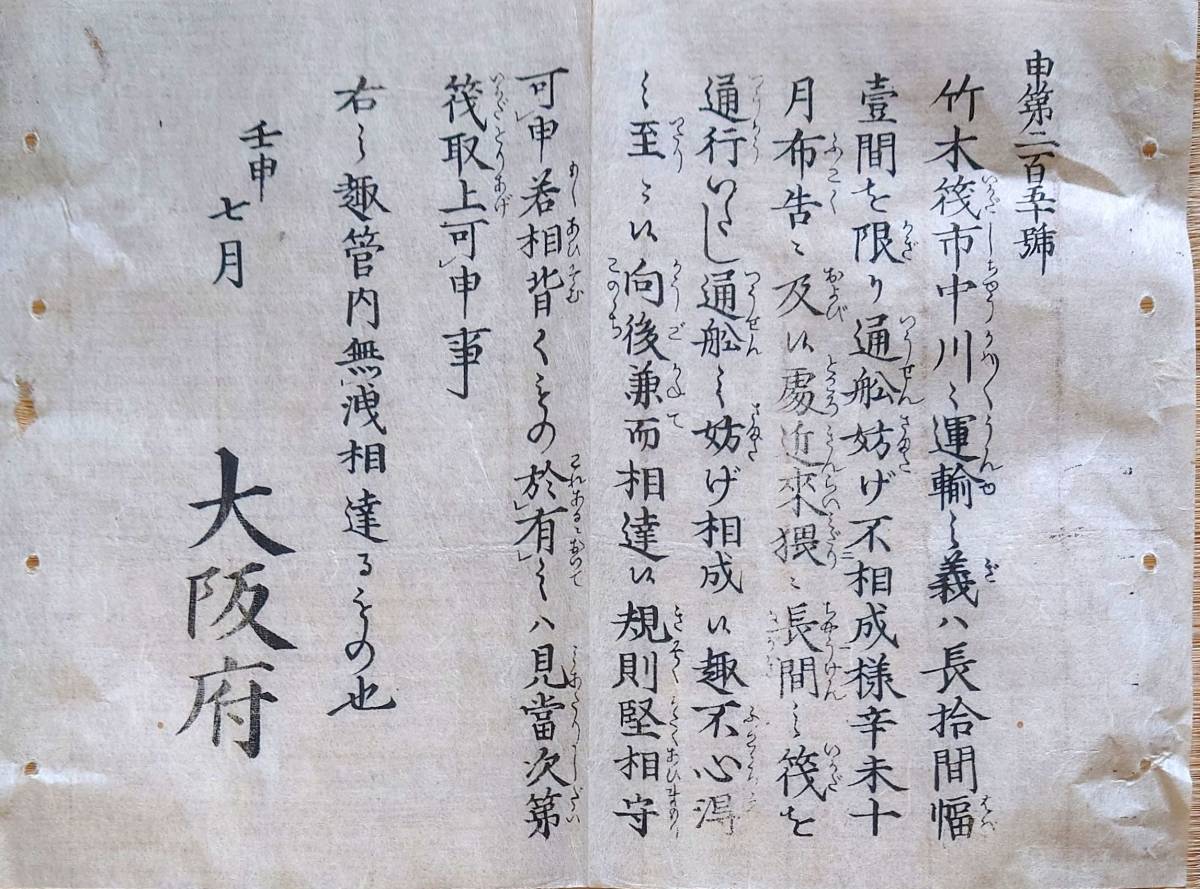 申第二百五十號
竹木筏市中川々運輸之義ハ長拾間幅
壹間を限り通舩妨げ不相成様辛未十
月布告ニ及候處近來猥ニ長間之筏を
通行いたし通舩之妨げ相成候趣不心得
之至ニ候向後兼而相達候規則堅相守
可申若相背くもの於有之ハ見當次第
筏取上可申事
右之趣管内無洩相達るもの也
壬申
七月
大阪府